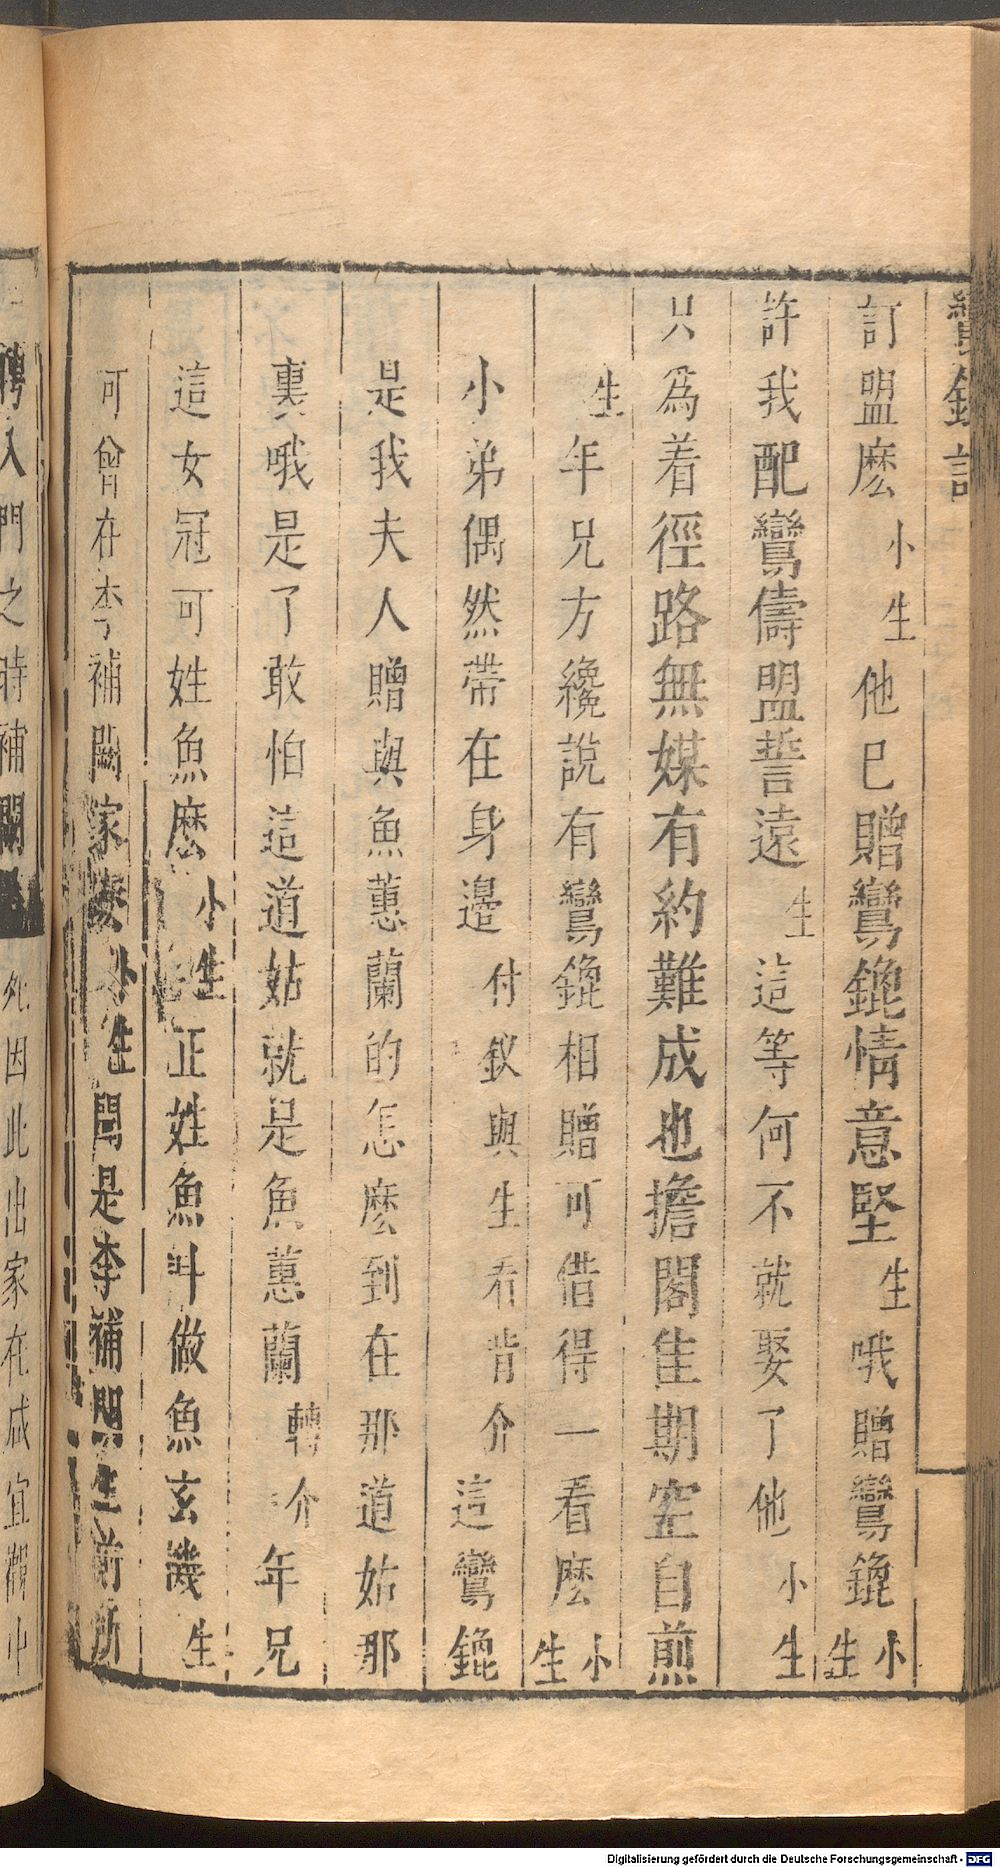 鸞鎞記
訂盟麽小生他巳贈鸞鎞情意堅生哦贈鸞鎞小生
許我配鸞儔盟誓遠生這等何不就娶了他小生
只為着徑路無媒有約難成也擔閣佳期空自煎
生年兄方纔說有鸞鎞相贈可借得一看麽小生
小弟偶然帶在身邊付釵與生看背介這鸞鎞
是我夫人贈與魚蕙蘭的怎麽到在那道姑那
裏哦是了敢怕這道姑就是魚蕙蘭轉介年兄
這女冠可姓魚麽小生正姓魚呌做魚玄機生
可曾在李補闕家麽小生聞是李補闕生前所
聘入門之時補闕
死因此出家在咸宜觀中
Digitalisierung gefördert durch die Deutsche Forschungsgemeinschaft - DFG